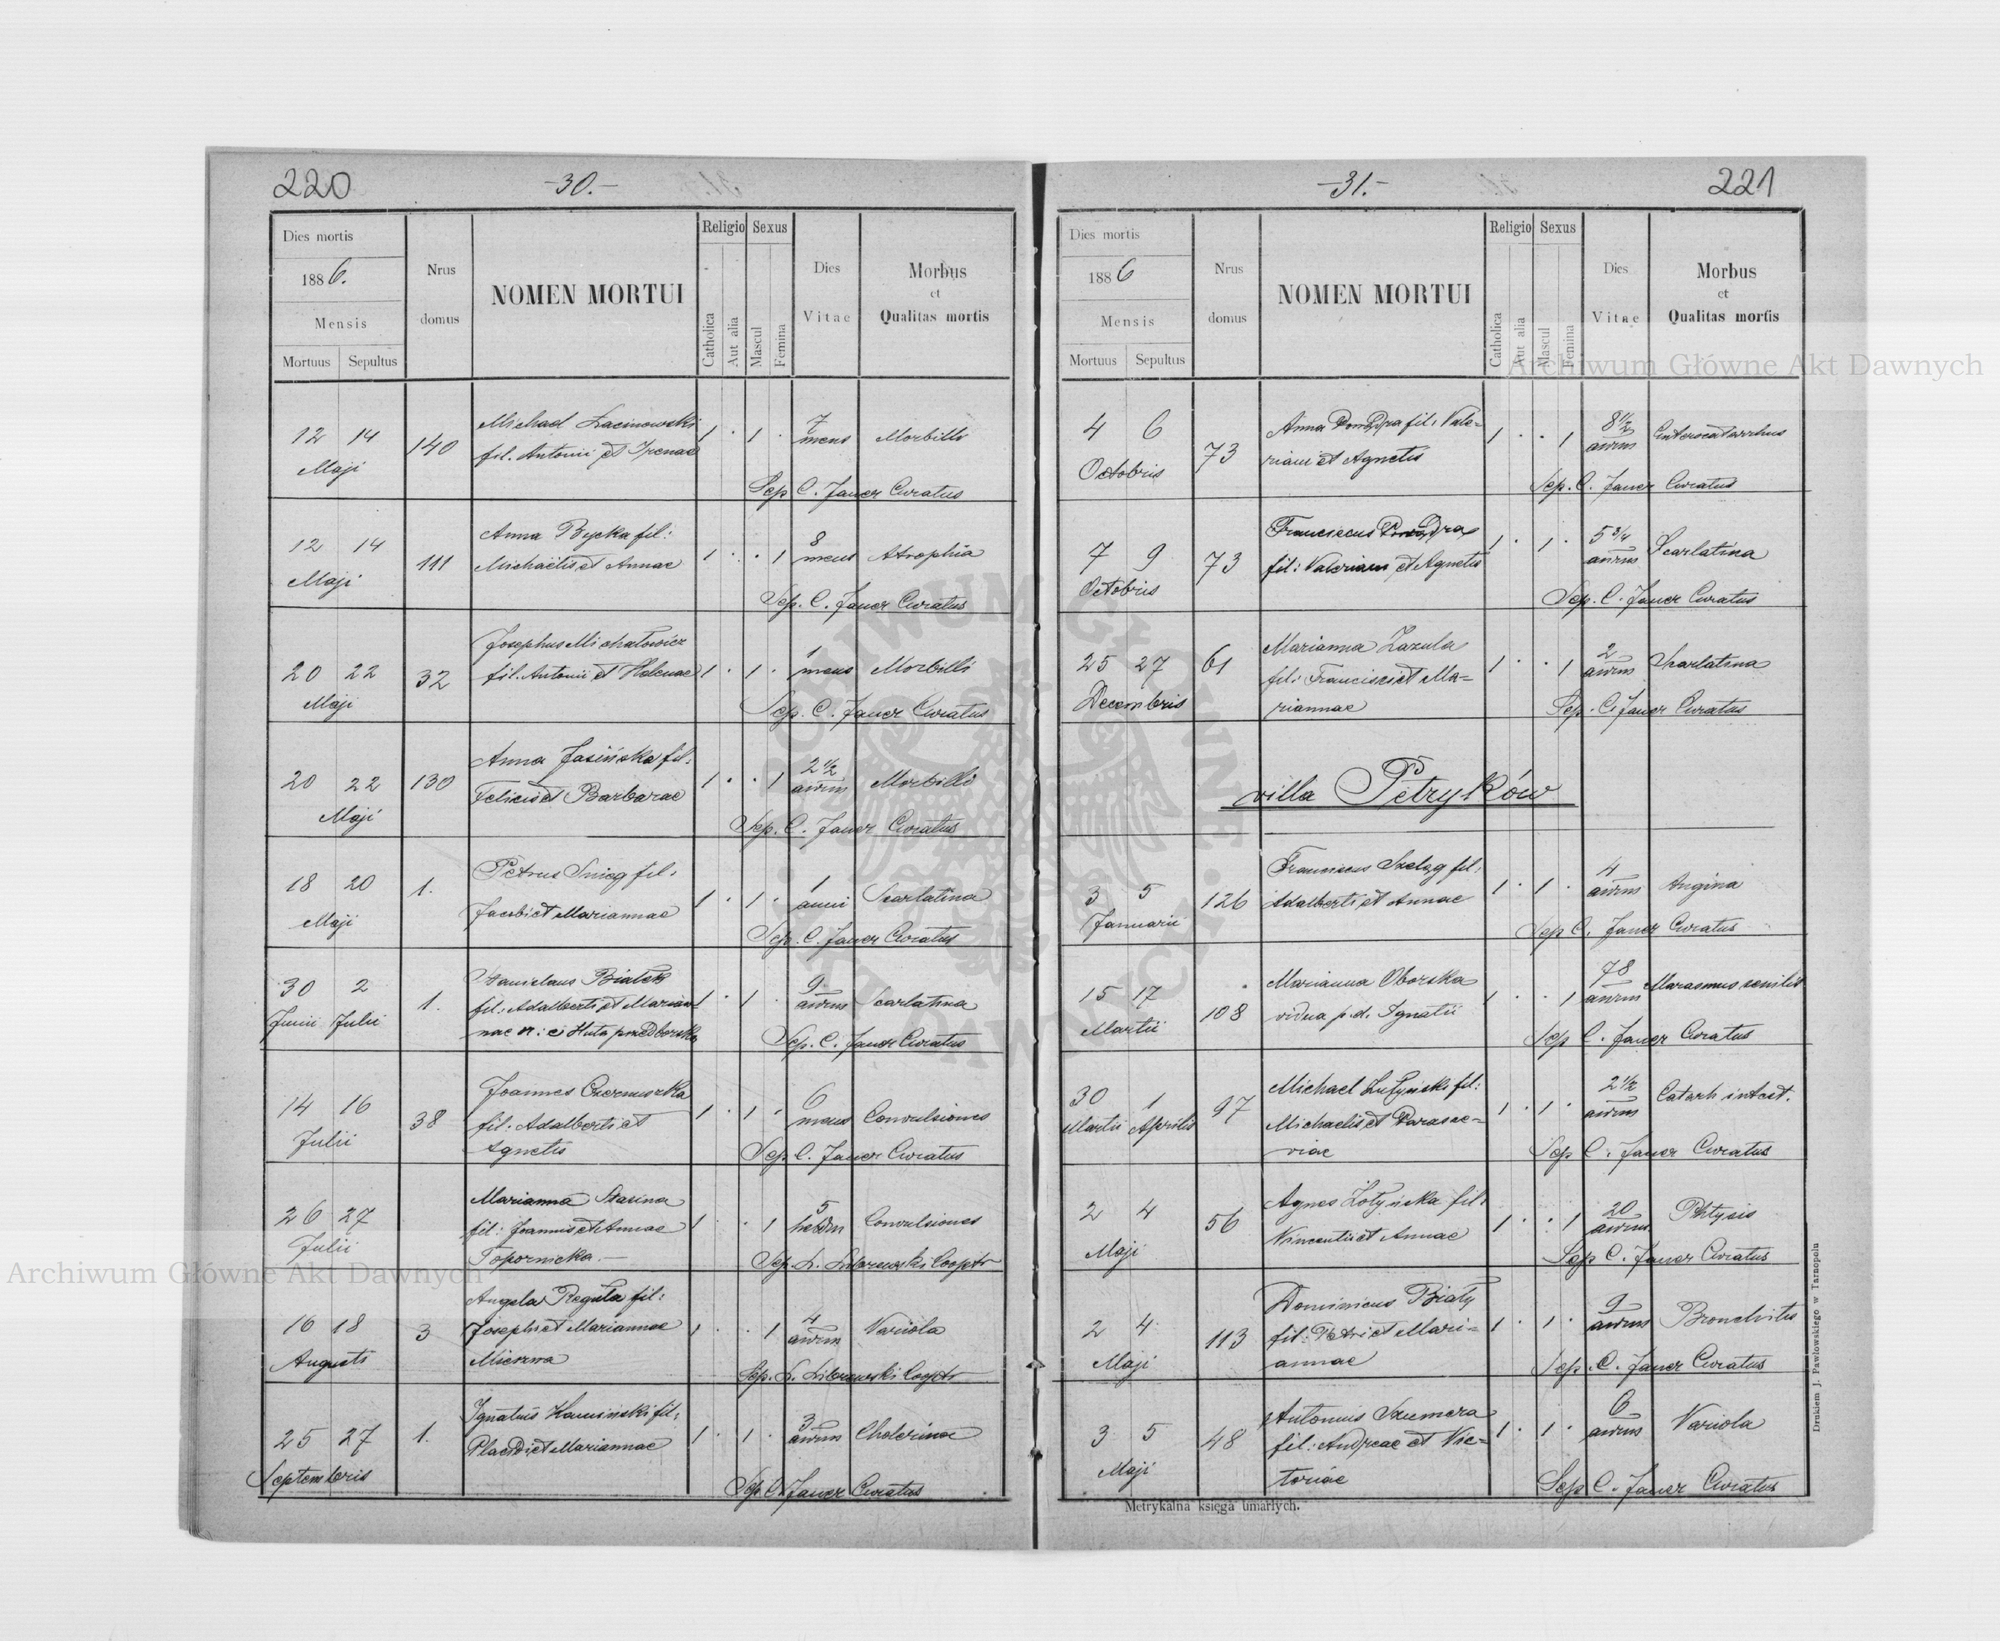 220
-30.-
Dies mortis
1886.
Mensis
Mortuus Sepultus
Nrus domus
NOMEN MORTUI
Religio
Catholica
Aut alia
Sexus
Mascul
Femina
Dies Vitae
Morbus
et
Qualitas mortis
Michael Łacinowski
12 14 140 fil. Antonii et Irenae 1 . 1 . 7 mens Morbilli
Maji
Sep. C. Jauer Curatus
Anna Bycka fil:
12 14 111 Michaelis et Annae 1 . . 1 8 mens Atrophia
Maji
Sep. C. Jauer Curatus
Josephus Michałowicz
20 22 32 fil. Antonii et Helenae 1 . 1 . 1 mens Morbilli
Maji
Sep. C. Jauer Curatus
Anna Jasińska fil.
20 22 130 Felicis et Barbarae 1 . . 1 2 1/2 annm Morbilli
Maji
Sep. C. Jauer Curatus
Petrus Snieg fil.
18 20 1. Jacobi et Mariannae 1 . 1 . 1 anni Scarlatina
Maji
Sep. C. Jauer Curatus
Stanislaus Białek
30 2 1. fil. Adalberti et Marian 1 . 1 . 9 annm Scarlatina
Junii Julii
nae n: e Huta
Sep. C. Jauer Curatus
Joannes Czernuszka
14 16 38 fil. Adalberti et 1 . 1 . 6 mens Convulsiones
Julii
Agnetis
Sep. C. Jauer Curatus
Marianna Stasina
26 27 fil. Joannis et Annae 1 . . 1 5 hebdm Convulsiones
Julii
Topornicka -
Sep. L. Librewski Cooptr
Angela Reguła fil:
16 18 3 Josephi et Mariannae 1 . . 1 4 annm Variola
Augusti
Mierzwa
Sep. L. Librewski Cooptr
Ignatius Kamiński fil:
25 27 1. Placidi et Mariannae 1 . 1 . 3 annm Cholerina
Septembris
Sep. C. Jauer Curatus
-31.-
221
Dies mortis
1886
Mensis
Mortuus Sepultus
Nrus domus
NOMEN MORTUI
Religio
Catholica
Aut alia
Sexus
Mascul
Femina
Dies Vitae
Morbus
et
Qualitas mortis
Anna fil: Vale-
4 6 73 riani et Agnetis 1 . . 1 8 1/2 annm Enterocatarrhus
Octobris
Sep. C. Jauer Curatus
Franciscus
7 9 73 fil: Valeriani et Agnetis 1 . 1 . 5 3/4 annm Scarlatina
Octobris
Sep. C. Jauer Curatus
Marianna Zazula
25 27 61 fil: Francisci et Ma- 1 . . 1 2 annm Scarlatina
Decembris
riannae
Sep. C. Jauer Curatus
villa Petryków
Franciscus Szeląg fil:
3 5 126 Adalberti et Annae 1 . 1 . 4 annm Angina
Januarii
Sep C. Jauer Curatus
Marianna Oborska
15 17 108 vidua p.d. Ignatii 1 . . 1 78 annm Marasmus senilis
Martii
Sep C. Jauer Curatus
Michael Lutyński fil:
30 1 97 Michaelis et Parasce- 1 . 1 . 2 1/2 annm Catarh intest.
Martii Aprilis
viae
Sep C. Jauer Curatus
Agnes Żołyńska fil:
2 4 56 Vincentii et Annae 1 . . 1 20 annm Phtysis
Maji
Sep C. Jauer Curatus
Dominicus Biały
2 4 113 fil: Petri et Mari- 1 . 1 . 9 annm Bronchitis
Maji
annae
Sep. C. Jauer Curatus
Antonius Szumera
3 5 48 fil: Andreae et Vic- 1 . 1 . 6 annm Variola
Maji
toriae
Sep C. Jauer Curatus
Metrykalna księga umarłych.
Drukiem J. Pawłowskiego w Tarnopolu
Archiwum Główne Akt Dawnych
Archiwum Główne Akt Dawnych
ARCHIWUM GŁÓWNE AKT DAWNYCH